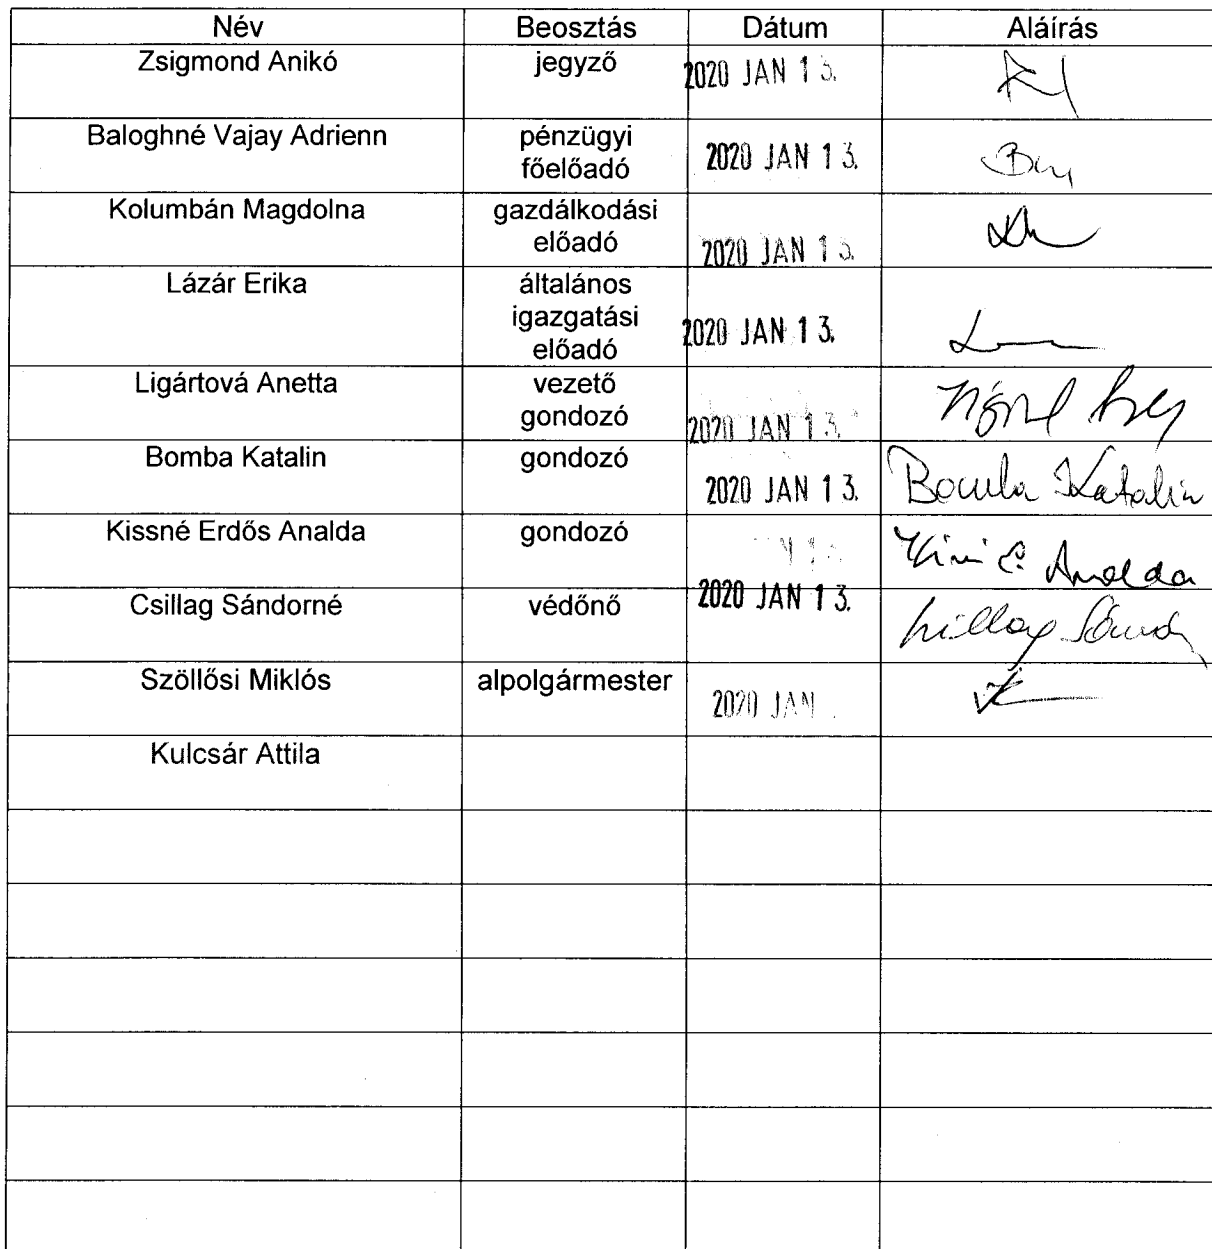 Név Beosztás Dátum Aláírás
Zsigmond Anikó jegyző 2020 JAN 13.
Baloghné Vajay Adrienn pénzügyi
főelőadó 2020 JAN 13.
Kolumbán Magdolna gazdálkodási
előadó 2020 JAN 13.
Lázár Erika általános
igazgatási
előadó 2020 JAN 13.
Ligártová Anetta vezető
gondozó 2020 JAN 13.
Bomba Katalin gondozó 2020 JAN 13. Bomba Katalin
Kissné Erdős Analda gondozó Analda
Csillag Sándorné védőnő 2020 JAN 13. Csillag
Szöllősi Miklós alpolgármester 2020 JAN
Kulcsár Attila